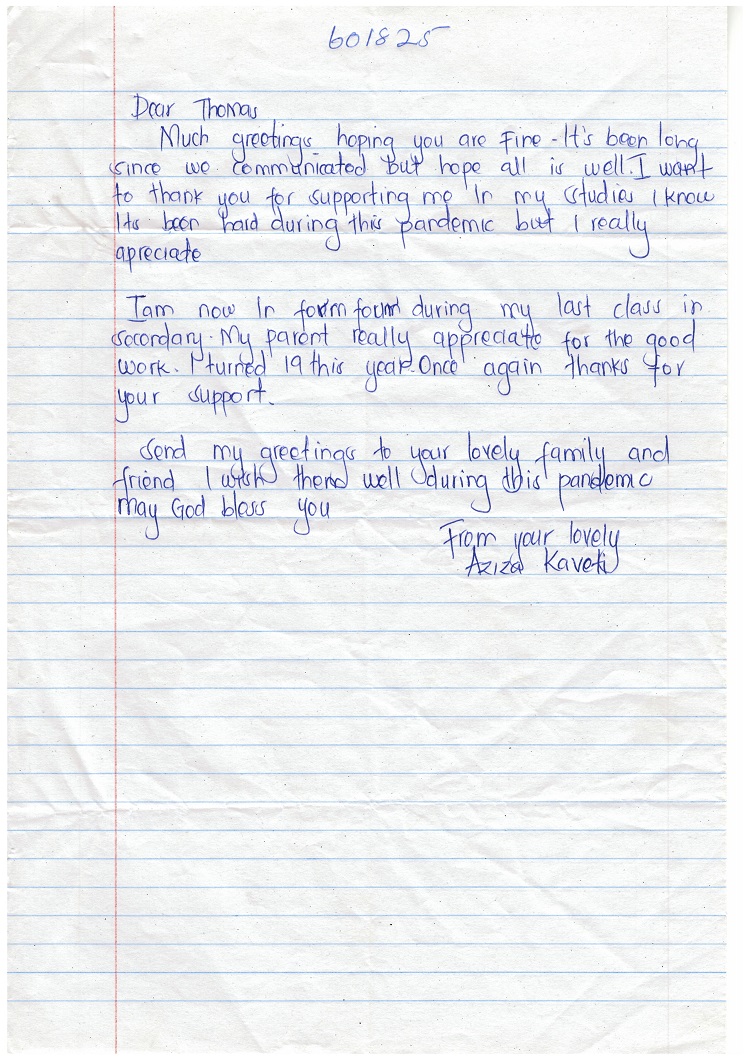 601825
Dear Thomas
Much greetings hoping you are Fine - It's been long
since we communicated but hope all is well. I want
to thank you for supporting me In my studies I know
Its been hard during this pandemic but I really
apreciate
Iam now In form four during my last class in
secordary. My parent really appreciate for the good
work. I turned 19 this year. Once again thanks for
your support.
Send my greetings to your lovely family and
friend I wish them well during this pandemic
may God bless you
From your lovely
Aziza Kaveti